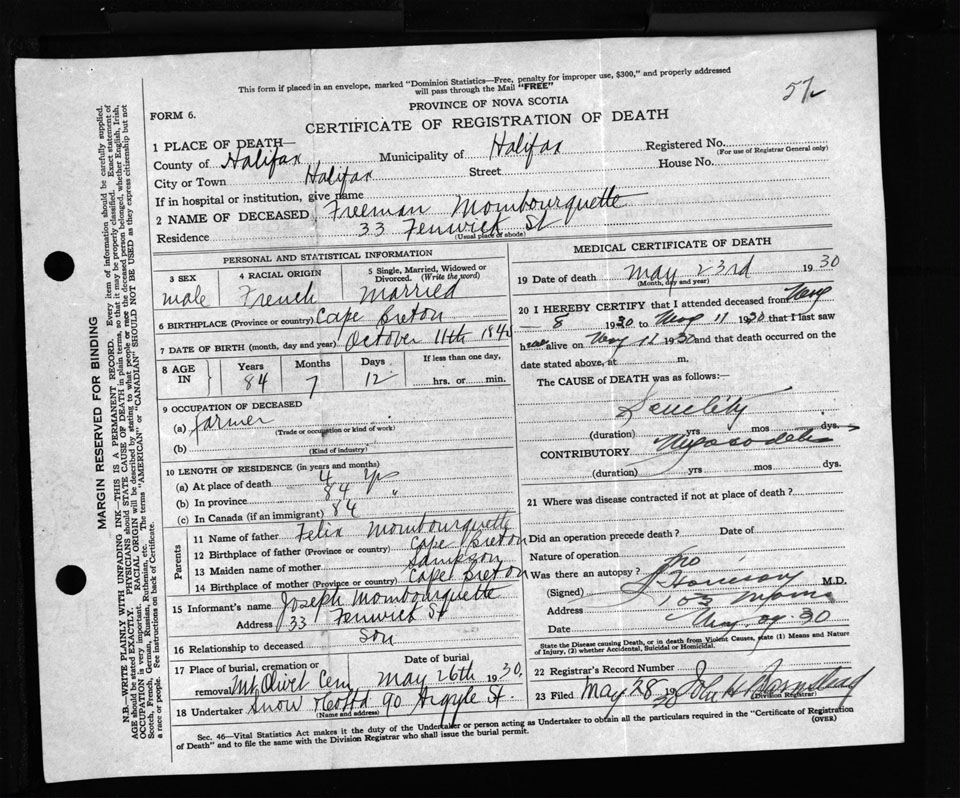 This form if placed in an envelope, marked "Dominion Statistics—Free, penalty for improper use, $300," and properly addressed
will pass through the Mail "FREE"
PROVINCE OF NOVA SCOTIA
FORM 6.
CERTIFICATE OF REGISTRATION OF DEATH
1 PLACE OF DEATH—
County of Halifax Municipality of Halifax Registered No.
(For use of Registrar General only)
City or Town Halifax Street House No.
If in hospital or institution, give name
2 NAME OF DECEASED Freeman Mombourquette
Residence 33 Fenwick St
(Usual place of abode)
PERSONAL AND STATISTICAL INFORMATION
3 SEX
male
4 RACIAL ORIGIN
French
5 Single, Married, Widowed or
Divorced. (Write the word)
Married
6 BIRTHPLACE (Province or country) Cape Breton
7 DATE OF BIRTH (month, day and year) October 11th
8 AGE
IN
Years
84
Months
7
Days
12
If less than one day,
hrs. or min.
9 OCCUPATION OF DECEASED
(a) farmer
(Trade or occupation or kind of work)
(b)
(Kind of industry)
10 LENGTH OF RESIDENCE (in years and months)
(a) At place of death 4
(b) In province 84 "
(c) In Canada (if an immigrant) 84
Parents
11 Name of father Felix Mombourquette
12 Birthplace of father (Province or country) Cape Breton
13 Maiden name of mother Sampson
14 Birthplace of mother (Province or country) Cape Breton
15 Informant's name Joseph Mombourquette
Address 33 Fenwick St
16 Relationship to deceased Son
17 Place of burial, cremation or
removal Mt Olivet Cem
Date of burial
May 26th 1930
18 Undertaker Snow & Co Ltd 90 Argyle St.
(Name and address)
MEDICAL CERTIFICATE OF DEATH
19 Date of death May 23rd 1930
(Month, day and year)
20 I HEREBY CERTIFY that I attended deceased from May
8 1930 to May 11 1930 that I last saw
h alive on May 11 1930 and that death occurred on the
date stated above, at m.
The CAUSE OF DEATH was as follows:—
Senility
(duration) yrs mos dys.
CONTRIBUTORY
(duration) yrs mos dys.
21 Where was disease contracted if not at place of death?
Did an operation precede death? Date of
Nature of operation
Was there an autopsy? no
(Signed) M.D.
Address 103
Date 30
State the Disease causing Death, or in death from Violent Causes, state (1) Means and Nature
of Injury, (2) whether Accidental, Suicidal or Homicidal.
22 Registrar's Record Number
23 Filed May 28 1930 John H Barnstead
(Division Registrar)
Sec. 46—Vital Statistics Act makes it the duty of the Undertaker or person acting as Undertaker to obtain all the particulars required in the "Certificate of Registration
of Death" and to file the same with the Division Registrar who shall issue the burial permit.
(OVER)
MARGIN RESERVED FOR BINDING
N.B.—WRITE PLAINLY WITH UNFADING INK—THIS IS A PERMANENT RECORD. Every item of information should be carefully supplied.
AGE should be stated EXACTLY. PHYSICIANS should STATE CAUSE OF DEATH in plain terms, so that it may be properly classified. Exact statement of
OCCUPATION is very important. RACIAL ORIGIN will be described by stating to what people or race the deceased person belonged, whether English, Irish,
Scotch, French, German, Russian, Ruthenian, etc. The terms "AMERICAN" or "CANADIAN" SHOULD NOT BE USED as they express citizenship but not
a race or people. See instructions on back of Certificate.